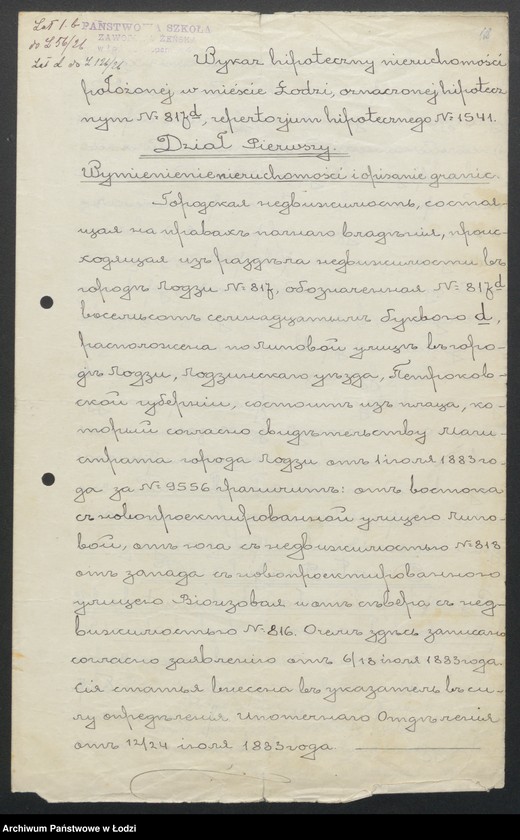 Zał. 1. b
do L 56/26
PAŃSTWOWA SZKOŁA
ZAWODOWA ŻEŃSKA
Wykaz hipoteczny nieruchomości
położonej w mieście Łodzi, oznaczonej hipotecz
nym № 817d, repertorjum hipotecznego № 1541.
Dział Pierwszy.
Wymienienie nieruchomości i opisanie granic.
Городская недвижимость, состоя-
щая на правахъ полнаго владѣнія, проис-
ходящая изъ раздѣла недвижимости въ
городѣ Лодзи № 817, обозначенная № 817d
восемьсотъ семнадцатымъ буквою d,
расположена по Липовой улицѣ въ горо-
дѣ Лодзи, Лодзинскаго уѣзда, Петроков-
ской губерніи, состоитъ изъ плаца, ко-
торый согласно свидѣтельству Маги-
страта города Лодзи отъ 1 іюля 1883 го-
да за № 9556 граничитъ: отъ востока
съ новопроектированной улицею Липо-
вой, отъ юга съ недвижимостью № 818
отъ запада съ новопроектированною
улицею и отъ сѣвера съ нед-
вижимостью № 816. О чемъ здѣсь записано
согласно заявленію отъ 6/18 іюля 1883 года.
Сія статья внесена въ указатель въ си-
лу опредѣленія Ипотечнаго Отдѣленія
отъ 12/24 іюля 1883 года.
Archiwum Państwowe w Łodzi